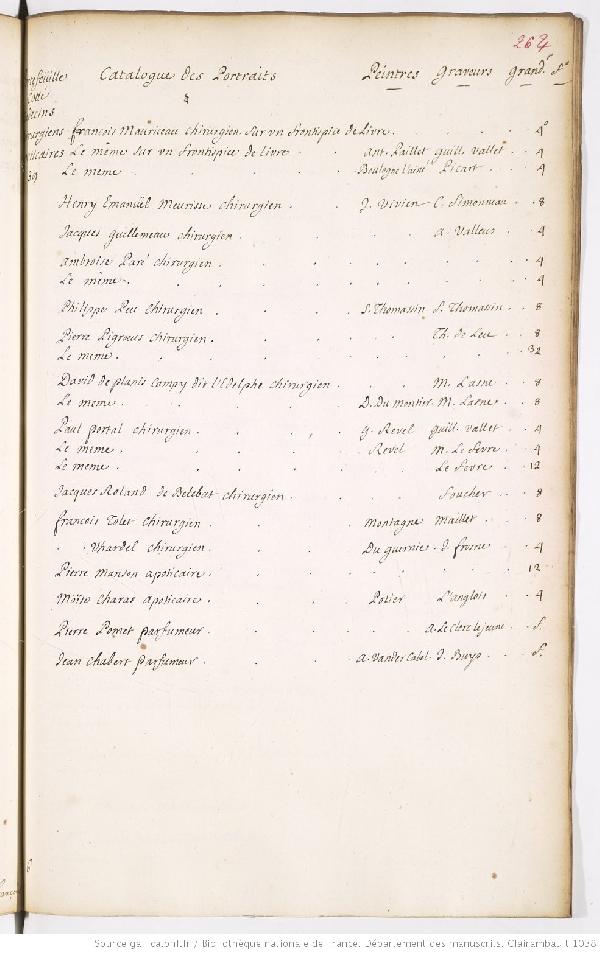 264
Catalogue des Portraits Peintres Graveurs Grandr. fo.
François Mauriceau Chirurgien sur un frontispice de Livre. 4o
Le même sur un frontispice de livre Ant. Paillet guill. vallet 4
Le meme Boulogne l'ainé Picart 4
39
Henry Emanüel Meurisse chirurgien J. Vivien C. Simonneau 8
Jacques guillemeau chirurgien a. Valleus 4
ambroise Paré chirurgien 4
Le même 4
Philippe Peu chirurgien S. Thomassin S. Thomassin 8
Pierre Pigraeus chirurgien Th. de Leu 8
Le meme 32
David de planis Campy dit l'Edelphe chirurgien M. Lasne 8
Le meme D. Du montier M. Lasne 8
Paul portal chirurgien g. Revel guill. vallet 4
Le meme Revel M. Le Fevre 4
Le meme Le Fevre 12
Jacques Roland de Belebat chirurgien Foucher 8
françois Tolet chirurgien Montagne Maillet 8
Vhardel chirurgien Du guernie J. frosne 4
Pierre Manson apoticaire 12
Moïse Charas apoticaire Potier L'anglois 4
Pierre Pomet parfumeur a. Le Clerc le jeune f.
Jean Chabert parfumeur a. Vander Cabel J. Buys f.
Source gallica.bnf.fr / Bibliothèque nationale de France. Département des manuscrits. Clairambault 1038